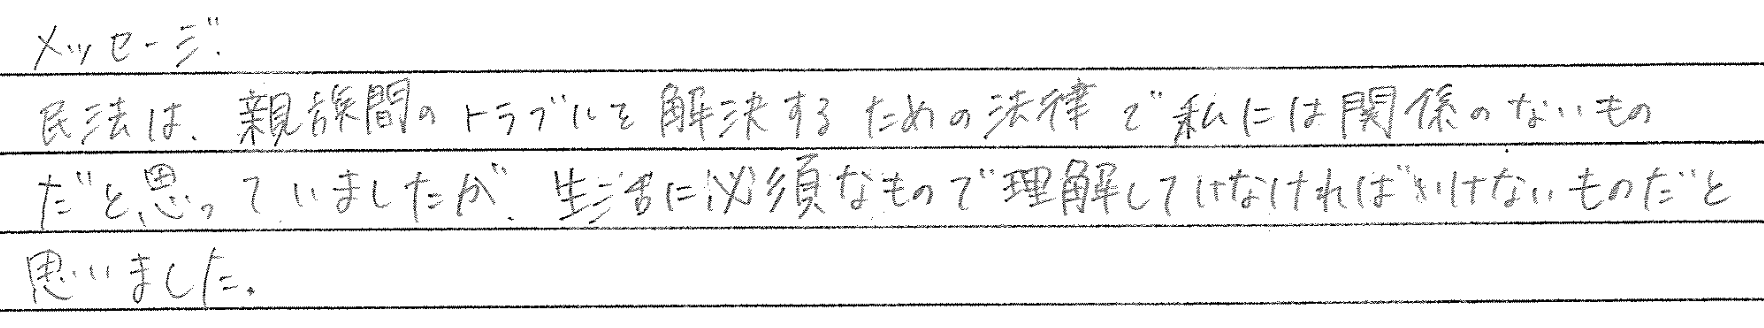 メッセージ
民法は、親族間のトラブルを解決するための法律で私には関係のないもの
だと思っていましたが、生活に必須なもので理解してけなければいけないものだと
思いました。